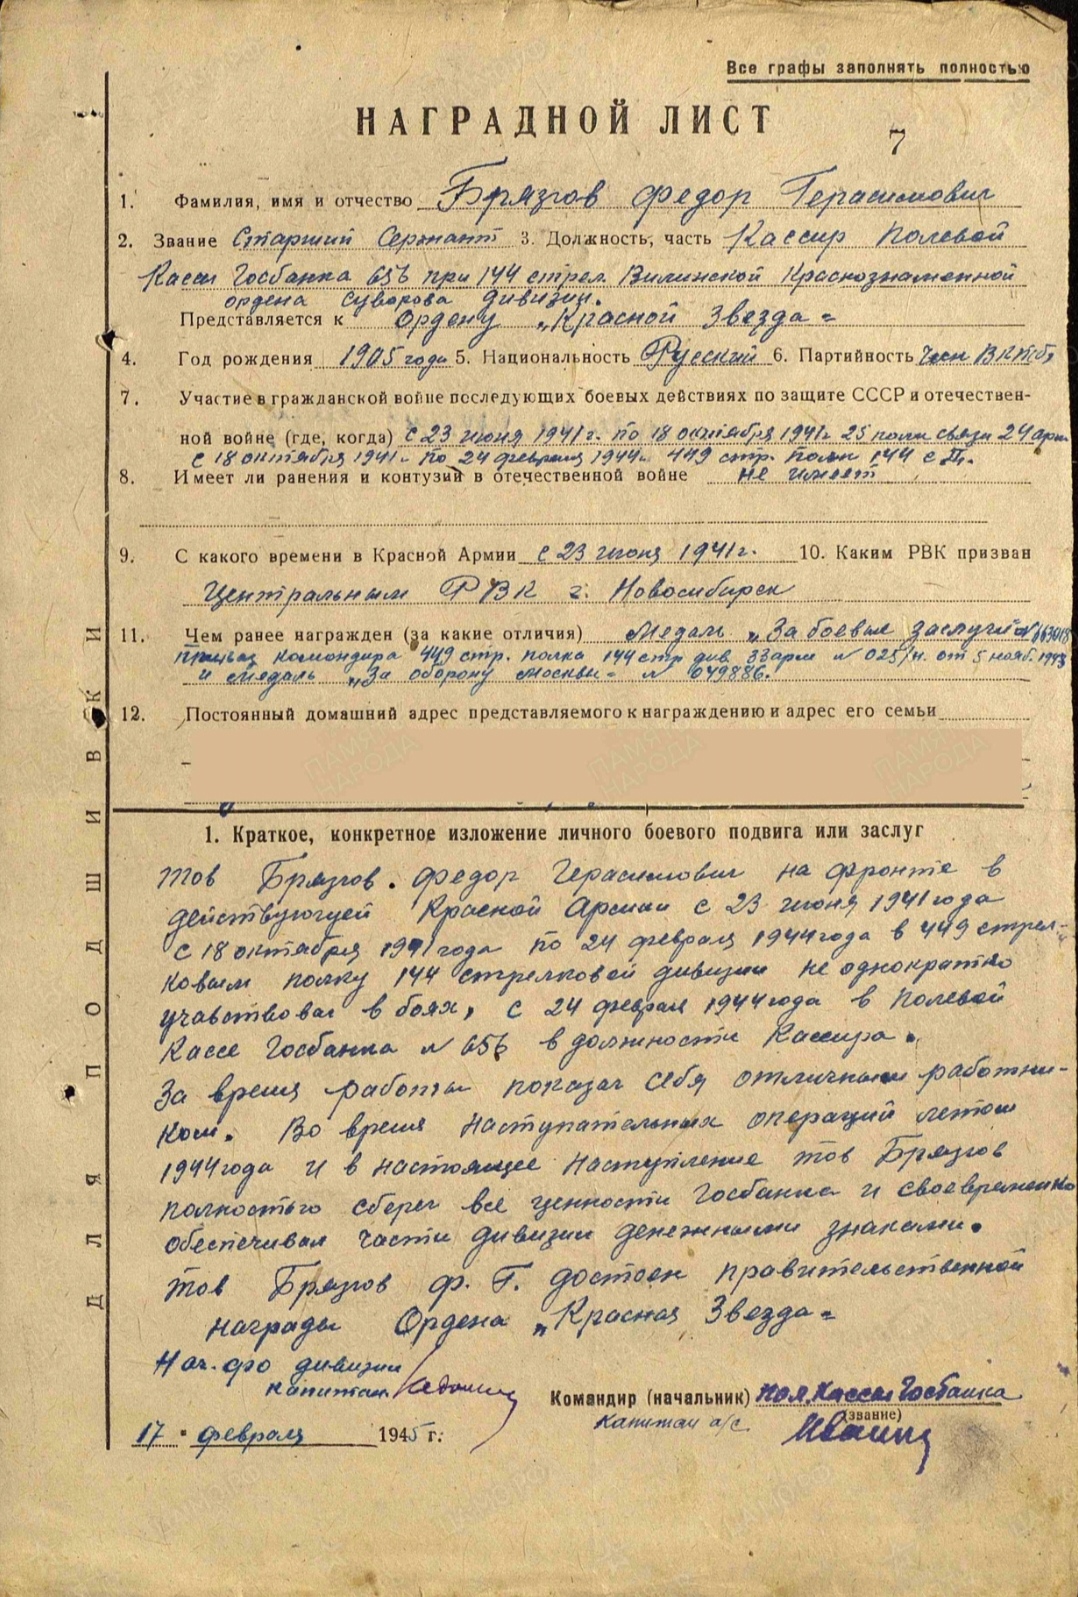 Все графы заполнять полностью
НАГРАДНОЙ ЛИСТ
7
1. Фамилия, имя и отчество Брязгов Федор Герасимович
2. Звание Старший Сержант 3. Должность, часть Кассир Полевой
Кассы Госбанка 656 при 144 стрел. Виленской Краснознаменной
ордена Суворова дивизии.
Представляется к Ордену „Красной Звезда"
4. Год рождения 1905 года 5. Национальность Русский 6. Партийность Член ВКПб
7. Участие в гражданской войне последующих боевых действиях по защите СССР и отечествен-
ной войне (где, когда) с 23 июня 1941 г. по 18 октября 1941 г 25 полк связи 24 арм
с 18 октября 1941 г. по 24 февраля 1944 г. 449 стр. полк 144 с.д.
8. Имеет ли ранения и контузии в отечественной войне не имеет
9. С какого времени в Красной Армии с 23 июня 1941 г. 10. Каким РВК призван
Центральным РВК г. Новосибирск
11. Чем ранее награжден (за какие отличия) Медаль „За боевые заслуги" №
приказ командира 449 стр. полка 144 стр див. 33 арм № 025/н. от 5 нояб. 1943
и медаль „За оборону Москвы" № 049886.
12. Постоянный домашний адрес представляемого к награждению и адрес его семьи
1. Краткое, конкретное изложение личного боевого подвига или заслуг
тов Брязгов. Федор Герасимович на фронте в
действующей Красной Армии с 23 июня 1941 года
с 18 октября 1941 года по 24 февраля 1944 года в 449 стрел-
ковым полку 144 стрелковой дивизии не однократно
учавствовал в боях, с 24 февраля 1944 года в Полевой
Кассе Госбанка № 656 в должности Кассира.
За время работы показал себя отличным работни-
ком. Во время наступательных операций летом
1944 года и в настоящее наступление тов Брязгов
полностью сберег все ценности Госбанка и своевременно
обеспечивал части дивизии денежными знаками.
Тов Брязгов Ф. Г. достоен правительственной
награды Ордена „Красная Звезда"
Нач. фо дивизии
капитан
Командир (начальник) пол. Кассы Госбанка
Капитан а/с (звание)
Иванов
17 " февраля 1945 г.
ДЛЯ ПОДШИВКИ